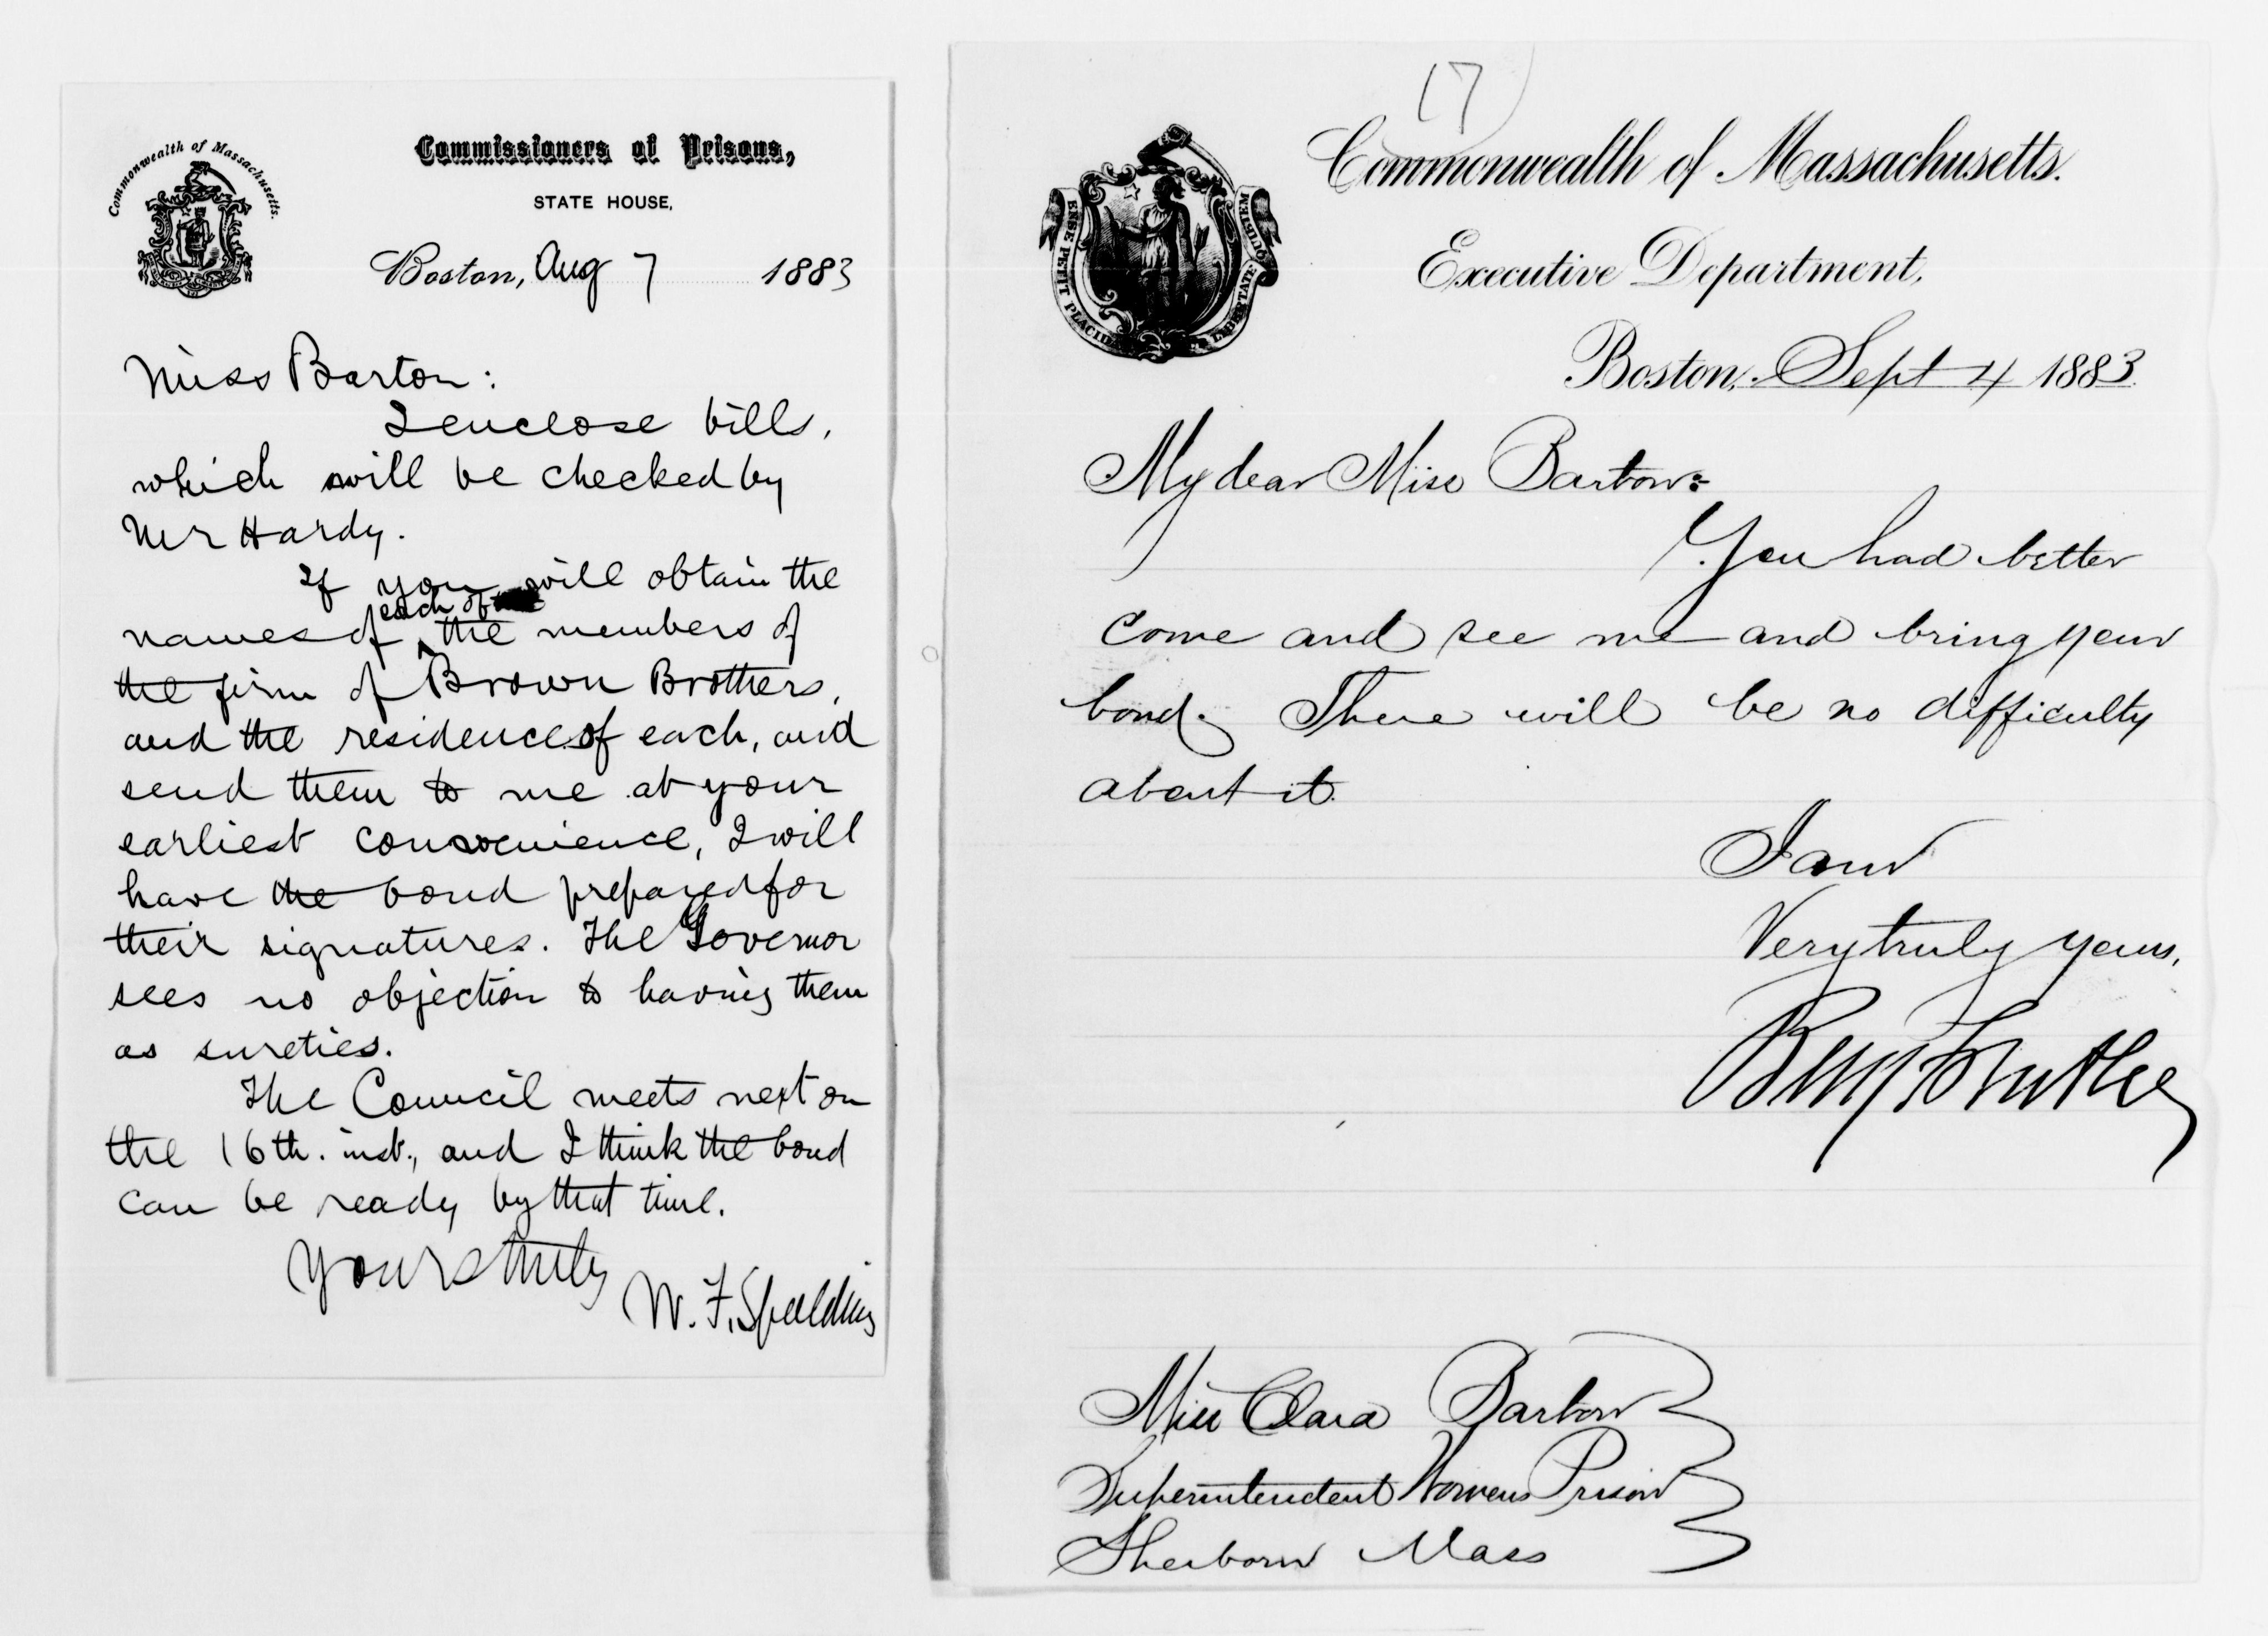 Commonwealth of Massachusetts.
Commissioners of Prisons,
STATE HOUSE,
Boston, Aug 7 1883
Miss Barton:
I enclose bills,
which will be checked by
Mr Hardy.
If you will obtain the
names of each of the members of
the firm of Brown Brothers,
and the residence of each, and
send them to me at your
earliest convenience, I will
have the bond prepared for
their signatures. The Governor
sees no objection to having them
as sureties.
The Council meets next on
the 16th. inst., and I think the bond
can be ready by that time.
Yours truly
W. F. Spalding
17
Commonwealth of Massachusetts.
Executive Department,
ENSE PETIT PLACIDAM LIBERTATE QUIETEM
Boston, Sept 4 1883.
My dear Miss Barton:
You had better
come and see me and bring your
bond. There will be no difficulty
about it.
I am
Very truly yours,
Benj F Butler
Miss Clara Barton
Superintendent Womens Prison
Sherborn Mass